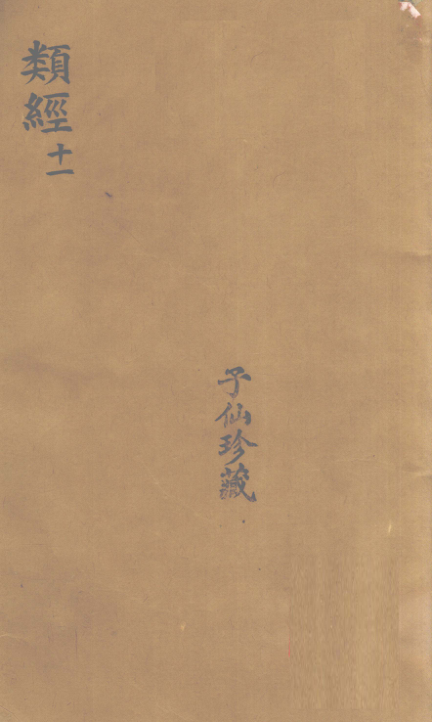 類經十一
子仙珍藏